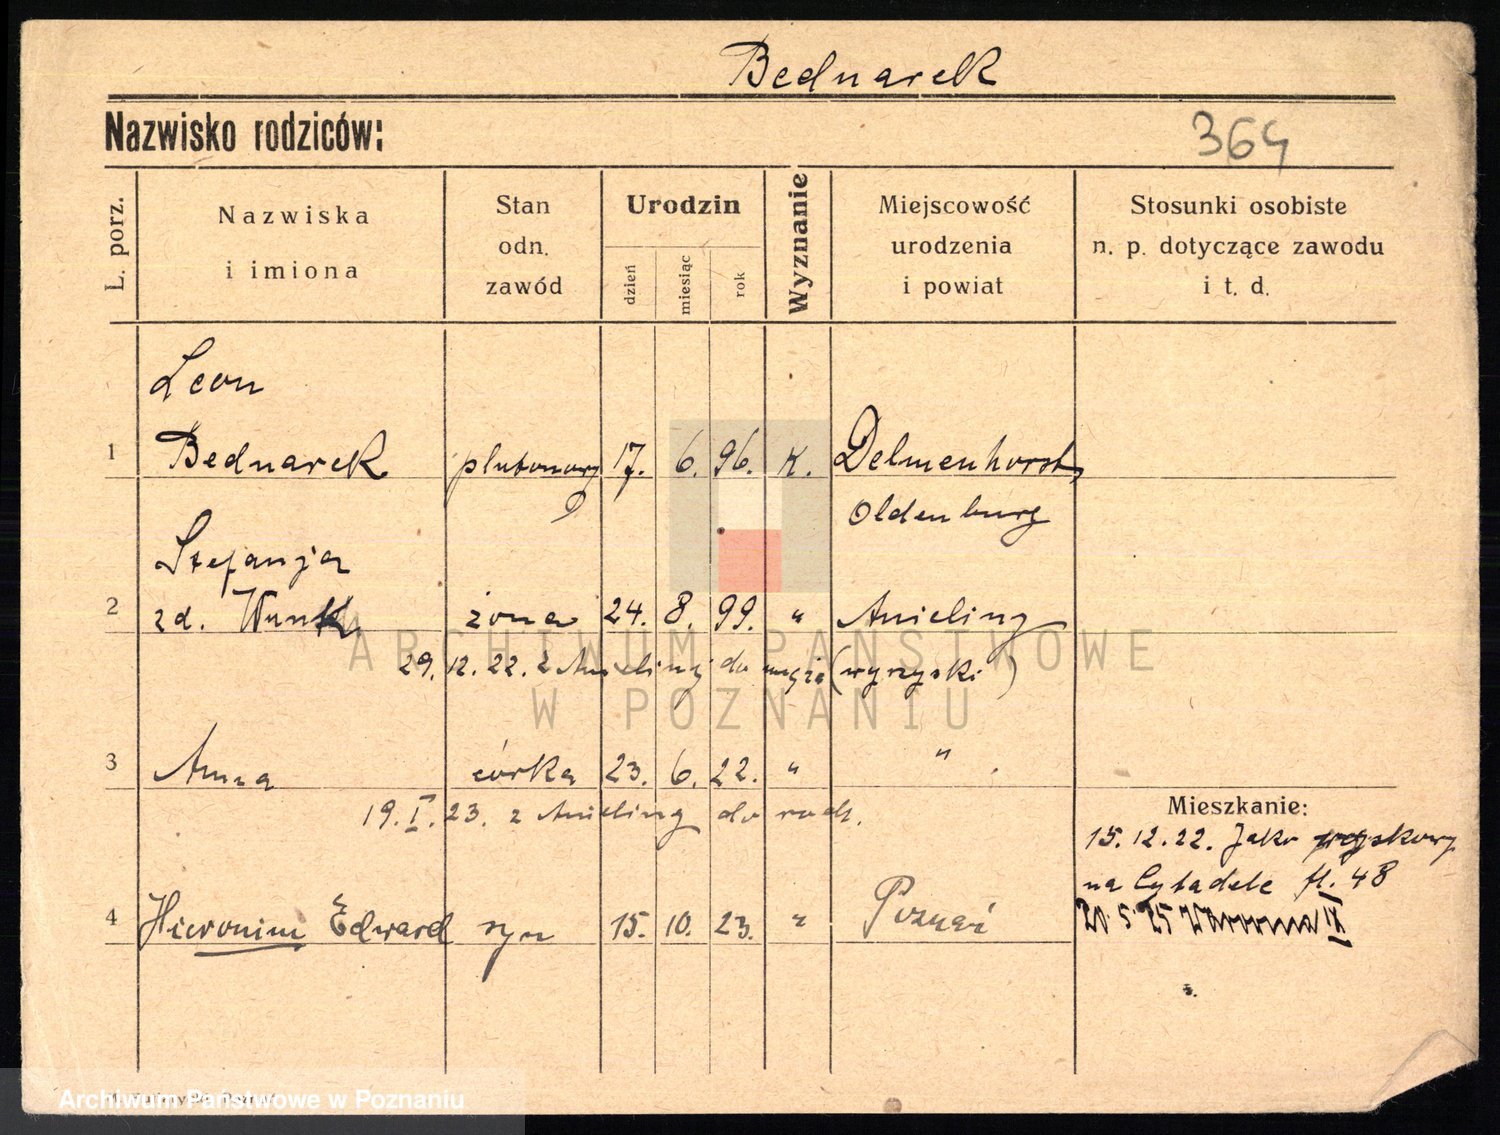 Bednarek
Nazwisko rodziców:
364
L. porz.
Nazwiska
i imiona
Stan
odn.
zawód
Urodzin
dzień
miesiąc
rok
Wyznanie
Miejscowość
urodzenia
i powiat
Stosunki osobiste
n. p. dotyczące zawodu
i t. d.
Leon
1 Bednarek plutonowy 17. 6. 96. K. Delmenhorst
Oldenburg
Stefanja
2 zd. Wunk żona 24. 8. 99. " Anieling
29. 12. 22. z Anieling do męża (wyrzyski)
3 Anna córka 23. 6. 22. " "
19. I. 23. z Anieling do rodz.
Mieszkanie:
15. 12. 22. Jako wojskowy
na Cytadele fl. 48
20. 5. 25
4 Hieronim Edward syn 15. 10. 23. " Poznań
ARCHIWUM PAŃSTWOWE
W POZNANIU
Archiwum Państwowe w Poznaniu